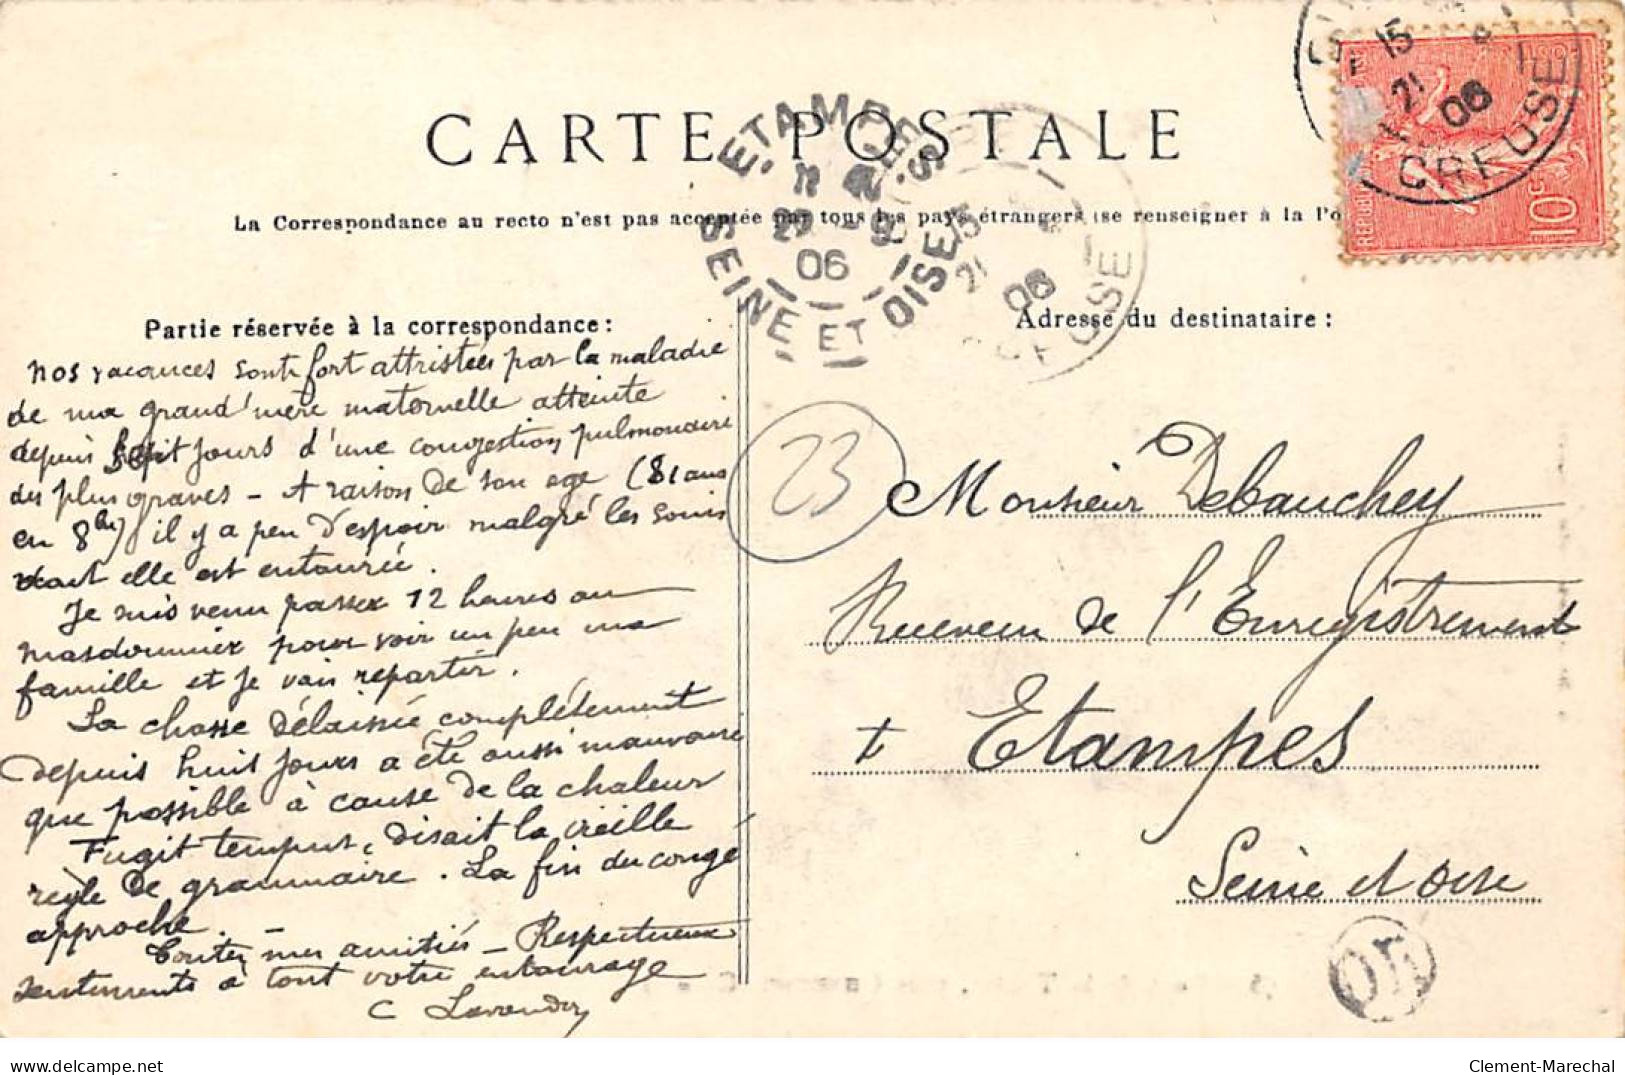 CARTE POSTALE
La Correspondance au recto n'est pas acceptée par tous les pays étrangers (se renseigner à la Po
ETAMPES
22 9
06
SEINE ET OISE
15
21
06
CREUSE
15
21
06
CREUSE
10c
Partie réservée à la correspondance:
nos vacances sont fort attristées par la maladie
de ma grand'mère maternelle atteinte
depuis jours d'une congestion pulmonaire
des plus graves - A raison de son age (81 ans
en 8bre) il y a peu d'espoir malgré les soins
dont elle est entourée.
Je suis venu passer 12 heures au
masdounier pour voir un peu ma
famille et je vais repartir.
La chasse délaissée complétement
depuis huit jours a été aussi mauvaise
que possible à cause de la chaleur
Fugit tempus, disait la vieille
règle de grammaire. La fin du congé
approche. -
Toutes mes amitiés - Respectueux
sentiments à tout votre entourage
C
Adresse du destinataire:
23
Monsieur Debauchey
Receveur de l'Enregistrement
Etampes
Seine et Oise
Clement-Marechal
delcampe.net